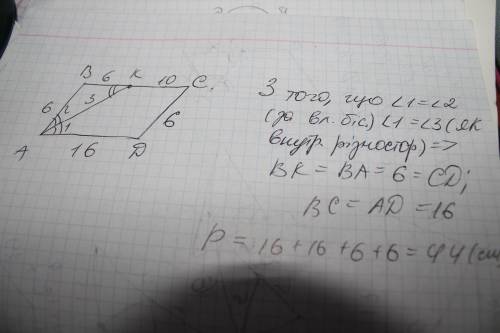 B 6 K 10 C.
6 2 3 6
1
A 16 D
З того, що ∠1=∠2
(за вл. біс) ∠1=∠3 (як
внутр. різностор) =>
BK = BA = 6 = CD;
BC = AD = 16
P = 16+16+6+6=44 (см